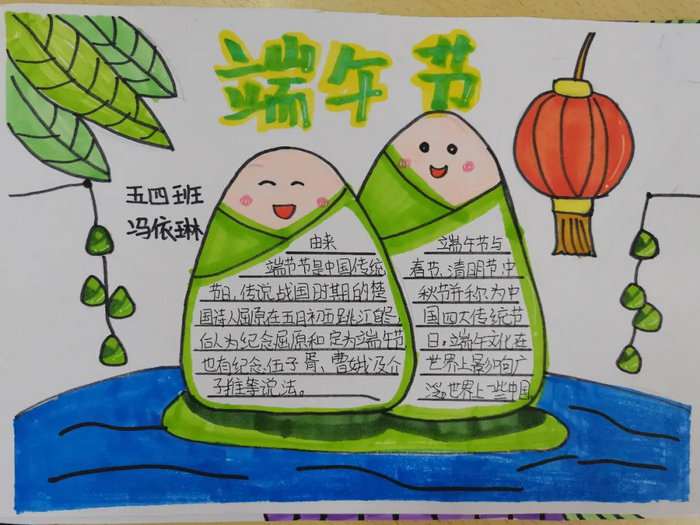 端午节
五四班
冯依琳
由来
端节节是中国传统
节日,传说战国时期的楚
国诗人屈原在五月初五跳江自尽,
后人为纪念屈原和定为端午节
也有纪念伍子胥、曹娥及介
子推等说法。
端午节与
春节、清明节、中
秋节并称为中
国四大传统节
日,端午文化在
世界上影响广
泛。世界上一些中国